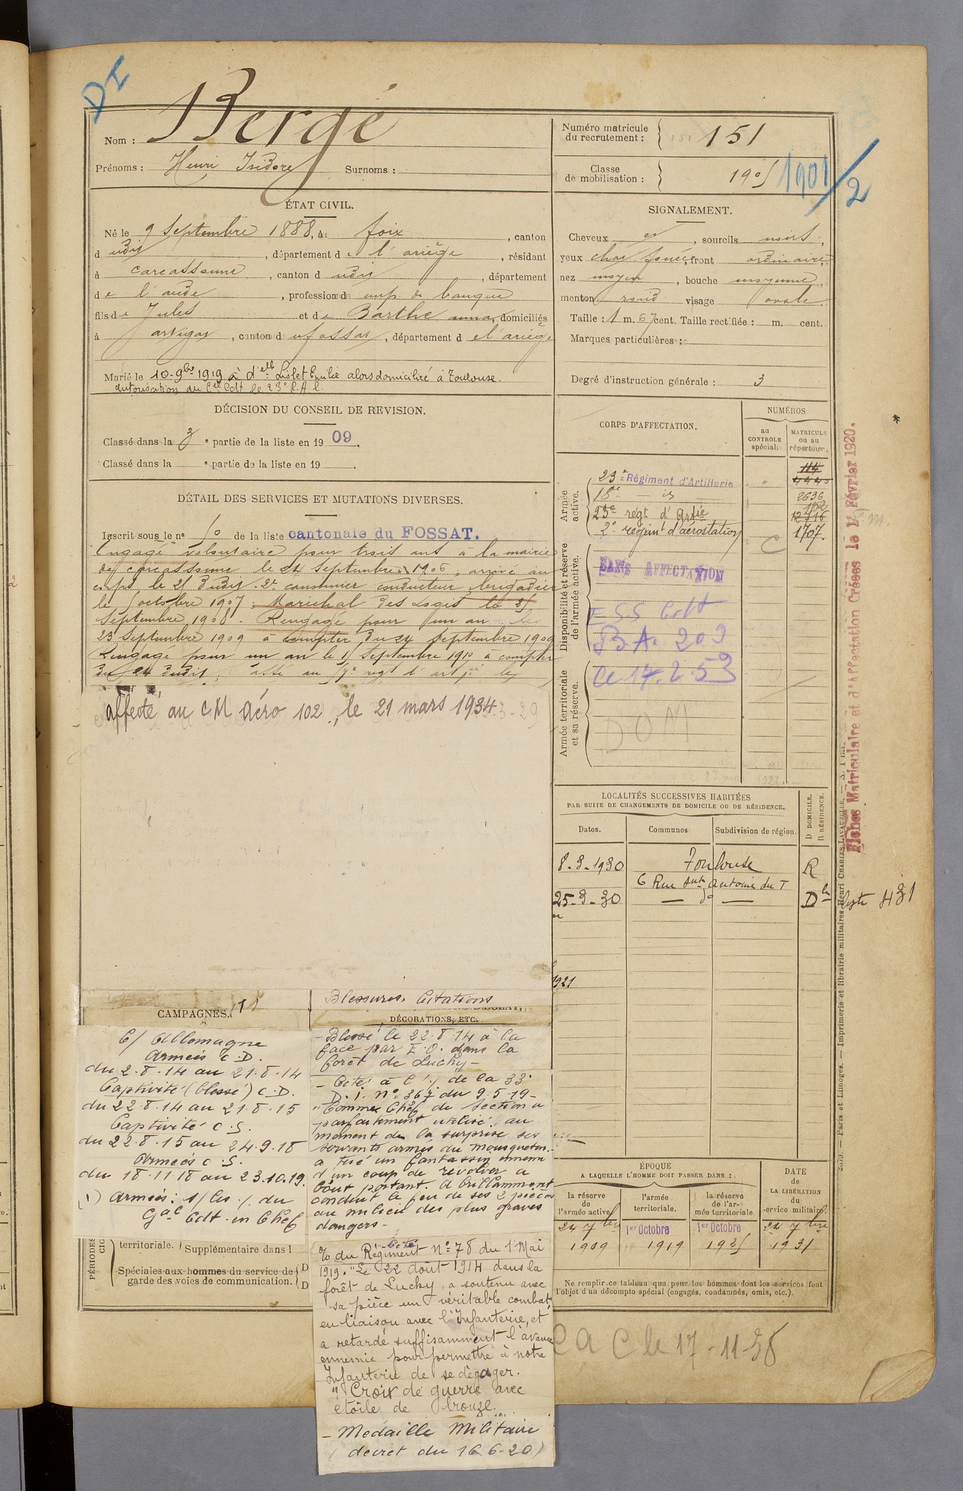 DI
Nom : Bergé
Prénoms : Henri Isidore Surnoms :
Numéro matricule du recrutement : 151
Classe de mobilisation : 1905 1901/2
ÉTAT CIVIL.
Né le 9 Septembre 1888, à foix, canton
d udit, département de l'ariège, résidant
à Carcassonne, canton d udit, département
de l'aude, profession d emp de banque
fils de Jules et de Barthe anna, domiciliés
à artigat, canton du fossat, département de l'ariège
Marié le 10-9bre 1919 à alors domicilié à Toulouse.
autorisation du Cdt le 23e R.A.C
SIGNALEMENT.
Cheveux et, sourcils noirs,
yeux foncé, front ordinaire,
nez moyen, bouche moyenne
menton rond visage ovale
Taille : 1 m. 67 cent. Taille rectifiée : m. cent.
Marques particulières :
Degré d'instruction générale : 3
DÉCISION DU CONSEIL DE REVISION.
Classé dans la 3e partie de la liste en 1909
Classé dans la e partie de la liste en 19
DÉTAIL DES SERVICES ET MUTATIONS DIVERSES.
Inscrit sous le n° 10 de la liste cantonale du FOSSAT.
Engagé volontaire pour trois ans à la mairie
de Carcassonne le 24 Septembre 1906, arrivé au
corps le 25 dudit. 2e canonnier conducteur, brigadier
le octobre 1907. Maréchal des Logis le 25
Septembre 1908. Rengagé pour un an le
23 Septembre 1909 à compter du 24 Septembre 1909
Rengagé pour un an le Septembre 1910 à compter
du 24 dudit.
affecté au CM Aéro 102, le 21 mars 1934
CORPS D'AFFECTATION.
NUMÉROS
au CONTROLE spécial.
MATRICULE ou au répertoire.
Armée active.
23e Régiment d'Artillerie
18e — d°
23e régt d'Artie
2e régiment d'aérostation
2636
1707.
Disponibilité et réserve de l'armée active.
SANS AFFECTATION
ESS Cdt
BA. 203
Ce 17.2.53
Armée territoriale et sa réserve.
DOM
Fiches Matriculaire et d'Affectation Créées le 1 Février 1920.
LOCALITÉS SUCCESSIVES HABITÉES
PAR SUITE DE CHANGEMENTS DE DOMICILE OU DE RÉSIDENCE.
Dates. Communes Subdivision de région. D DOMICILE. R RÉSIDENCE.
8-3-1930 Toulouse R
6 Rue Antoine du T
25-3-30 — d° — D
liste 481
1921
CAMPAGNES.
C/ Allemagne
Armées C.D.
du 2.8.14 au 21.8.14
Captivité (blessé) C.D.
du 22.8.14 au 21.8.15
Captivité C.S.
du 22.8.15 au 24.9.18
Armées C.S.
du 18.11.18 au 23.10.19.
Gal Cdt en Chef
Blessures. Citations
DÉCORATIONS, ETC.
- Blessé le 22.8.14 à la
face par E.O. dans la
forêt de Luchy -
- Cité à l'o/ de la 33e
D.I. n° 367 du 9.5.19 -
"Comme Chef de Section a
parfaitement utilisé, au
moment de la surprise ses
servants armés du mousqueton.
a tué un fantassin ennemi
d'un coup de révolver à
bout portant. A brillamment
conduit le feu de ses 2 pièces
au milieu des plus graves
dangers -
- Cité
à l'o du Régiment N° 78 du 1 Mai
1919. "Le 22 août 1914 dans la
forêt de Luchy, a soutenu avec
sa pièce un véritable combat,
en liaison avec l'Infanterie, et
a retardé suffisamment l'avance
ennemie pour permettre à notre
Infanterie de se dégager.
"Croix de guerre avec
étoile de bronze.
- Médaille Militaire
(décret du 16-6-20)
PÉRIODES
territoriale. Supplémentaire dans l
Spéciales aux hommes du service de
garde des voies de communication.
ÉPOQUE
A LAQUELLE L'HOMME DOIT PASSER DANS :
la réserve de l'armée active
l'armée territoriale.
la réserve de l'armée territoriale.
DATE de LA LIBÉRATION du service militaire.
24 7bre 1909
1er Octobre 1919
1er Octobre 1925
24 7bre 1931
Ne remplir ce tableau que pour les hommes dont les services font
l'objet d'un décompte spécial (engagés, condamnés, omis, etc.).
Paris et Limoges. — Imprimerie et librairie militaires Henri CHARLES-LAVAUZELLE.
C a C le 17-11-38